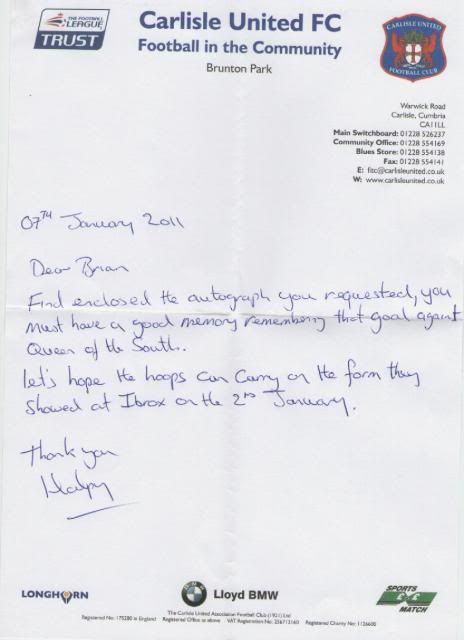 THE FOOTBALL LEAGUE
TRUST
Carlisle United FC
Football in the Community
Brunton Park
CARLISLE UNITED
FOOTBALL CLUB
Warwick Road
Carlisle, Cumbria
CA1 1LL
Main Switchboard: 01228 526237
Community Office: 01228 554169
Blues Store: 01228 554138
Fax: 01228 554141
E: fitc@carlisleunited.co.uk
W: www.carlisleunited.co.uk
07TH January 2011
Dear Brian
Find enclosed the autograph you requested, you
must have a good memory remembering that goal against
Queen of the South.
Let's hope the hoops can carry on the form they
showed at Ibrox on the 2nd January.
Thank you
LONGHORN
BMW
Lloyd BMW
SPORTS
££
MATCH
The Carlisle United Association Football Club (1921) Ltd
Registered No: 175280 in England Registered Office as above VAT Registration No: 256713160 Registered Charity No: 1126600